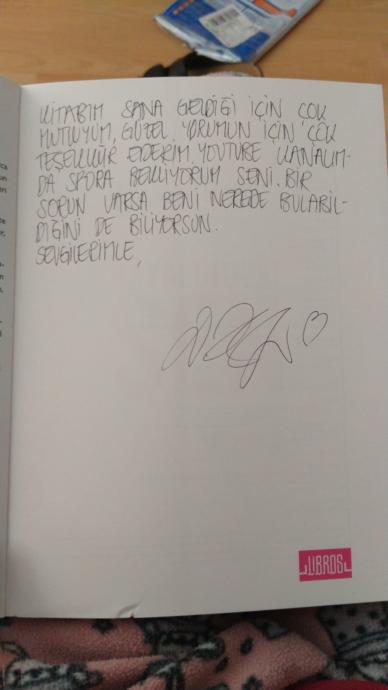 KİTABIM SANA GELDİĞİ İÇİN ÇOK
MUTLUYUM, GÜZEL YORUMUN İÇİN ÇOK
TEŞEKKÜR EDERİM. YOUTUBE KANALIM-
DA SPORA BEKLİYORUM SENİ. BİR
SORUN VARSA BENİ NEREDE BULABİL-
DİĞİNİ DE BİLİYORSUN.
SEVGİLERİMLE,
LIBROS